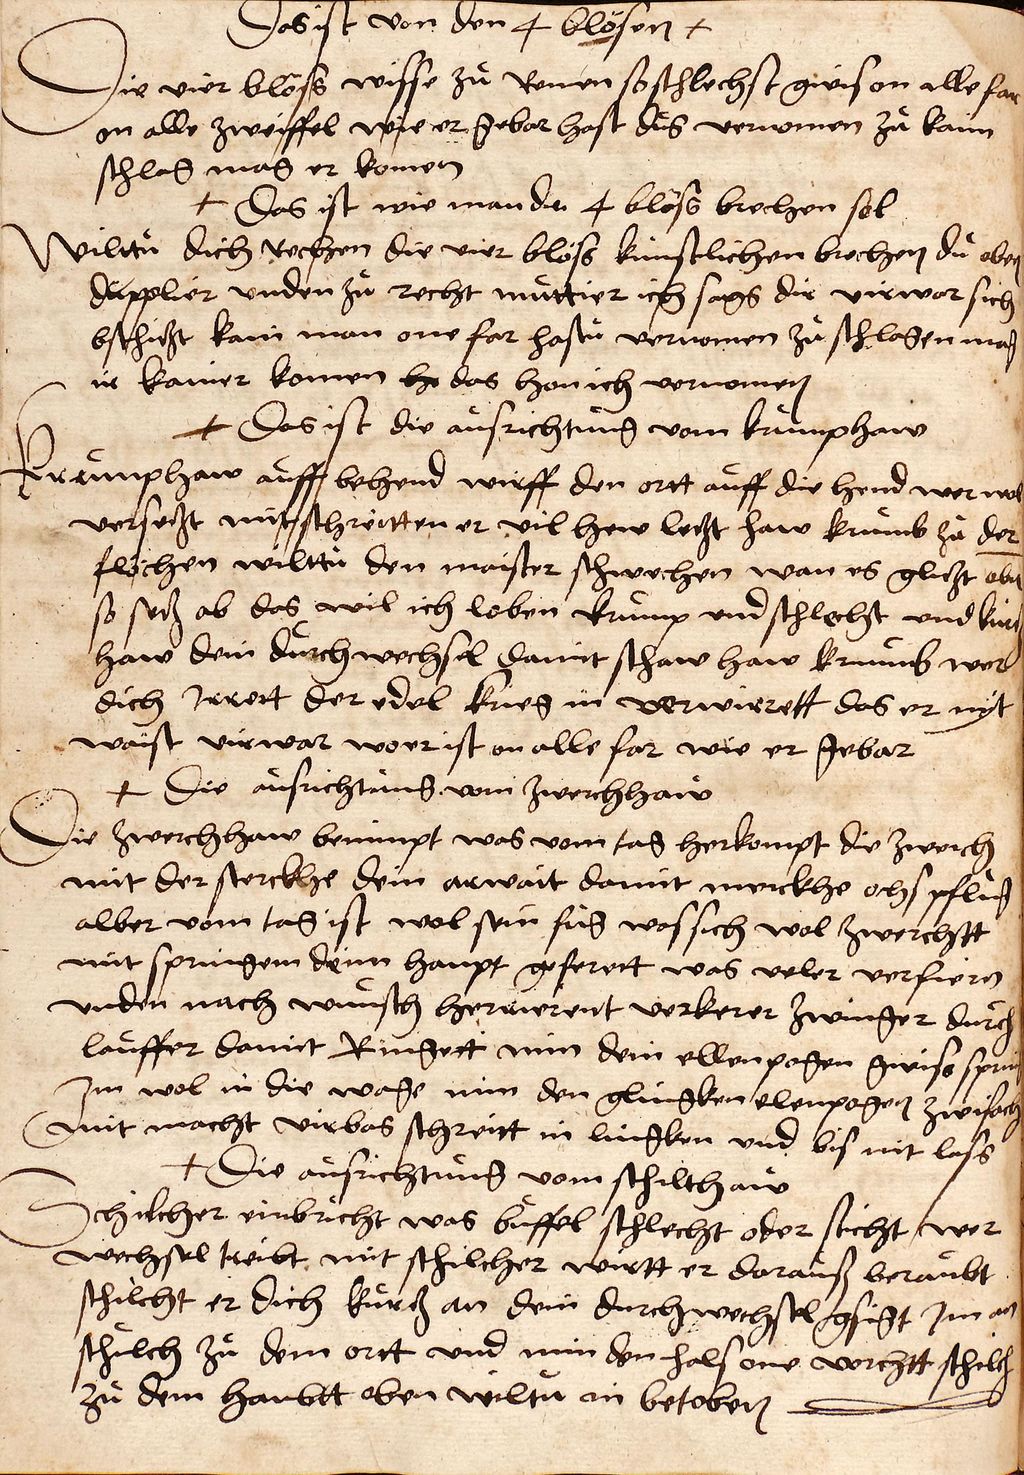 Das ist von den 4 blösen +
Die vier blöss wisse zu Remen so schlechst gwis on alle far
on alle zweiffel wie er gebar hast dus vernomen zu kain
schlag mag er komen
+ Das ist wie man die 4 blöss brechen sol
Wiltu dich rechen die vier blöss künstlichen brechen du oben
duplier unden zu recht muttier ich sags dir virwar sich
bschützt kain man one far hastu vernomen zu schlagen mag
ir kainer komen das han ich vernomen
+ Das ist die ausrichtung vom krumphaw
Krumphaw auff behend wirff den ortt auff die hend wer wol
versetzt mit schreitten er vil hew letzt haw krumb zu der
flöchen wilttu den maister schwechen wan es glitzt oben
so setz ab das wil ich loben krump und schlecht und kurtz
haw dein durchwechsel damit schaw haw krumb wer
dich Irrett der edel krieg in verwirrett das er nyt
waist virwar wo er ist on alle far wie er gebar
+ Die ausrichtung vom zwerchhaw
Die zwerchhaw benimpt was vom tag herkompt die zwerch
mit der sterckhe dein arwait damit merckhe ochs pflug
alber vom tag ist wol sein fug was sich wol zwerchtt
mit springen denn haupt geferett was veler verfieren
unden nach wunsch herrierent verkerer zwinger durch
lauffer damit Ringett nim dein ellenpogen gwiss spring
Im wol in die wage nim den glingken elenpogen zwifach
mit macht virbas schreitt in lingken und bis nit lass
+ Die ausrichtung vom schilthaw
Schilcher einbricht was büffel schlecht oder sticht wer
wechsel treibt mit schilcher wirtt er darauß beraubt
schilcht er dich kurtz an dein durchwechsel gsigt Im an
schilch zu dem ortt und nim den hals one vorchtt schilch
zu dem haubtt oben wiltu in betoben